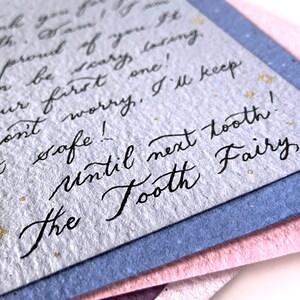 you for
I am
proud of you. It
be scary, losing
first one!
worry, I'll keep
safe!
Until next tooth!
The Tooth Fairy